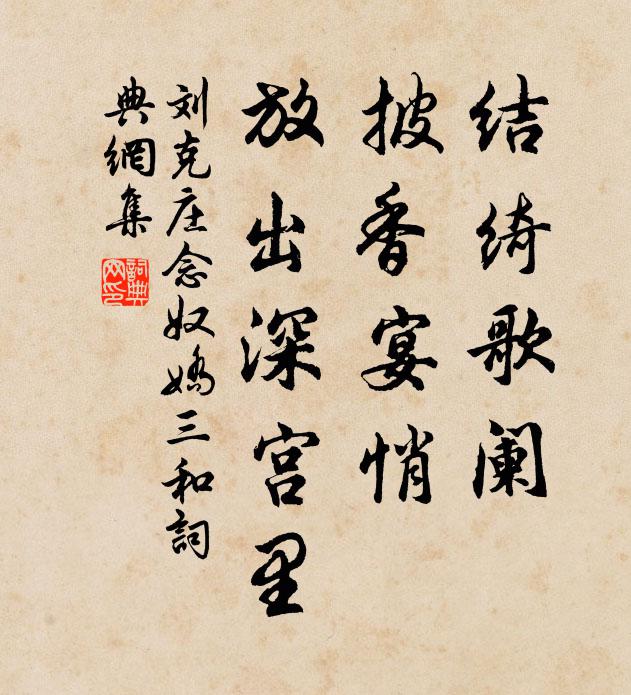 结绮歌阑
披香宴悄
放出深宫里
刘克庄念奴娇三和詞
典網集
詞典
网印